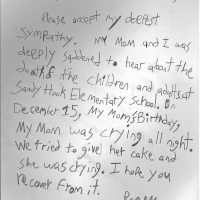 Please accept my deepest
Sympathy. My Mom and I was
deeply saddened to hear about the
death of the children and adults at
Sandy Hook Elementary School. On
December 15, My Mom's Birthday,
My Mom was crying all night.
We tried to give her cake and
she was crying. I hope you
recover from it.